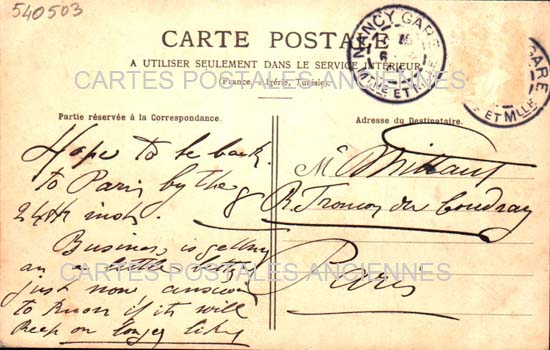 540503
CARTE POSTALE
A UTILISER SEULEMENT DANS LE SERVICE INTÉRIEUR
(France, Algérie, Tunisie).
NANCY GARE
MTHE ET MLLE
GARE
ET MLLE
CARTES POSTALES ANCIENNES
Partie réservée à la Correspondance.
Adresse du Destinataire.
Hope to be back
to Paris by the
24th inst.
Business is getting
a little better
just now anxious
to know if it will
keep on longer likely
M
8 R. Tronson du Coudray
Paris
CARTES POSTALES ANCIENNES